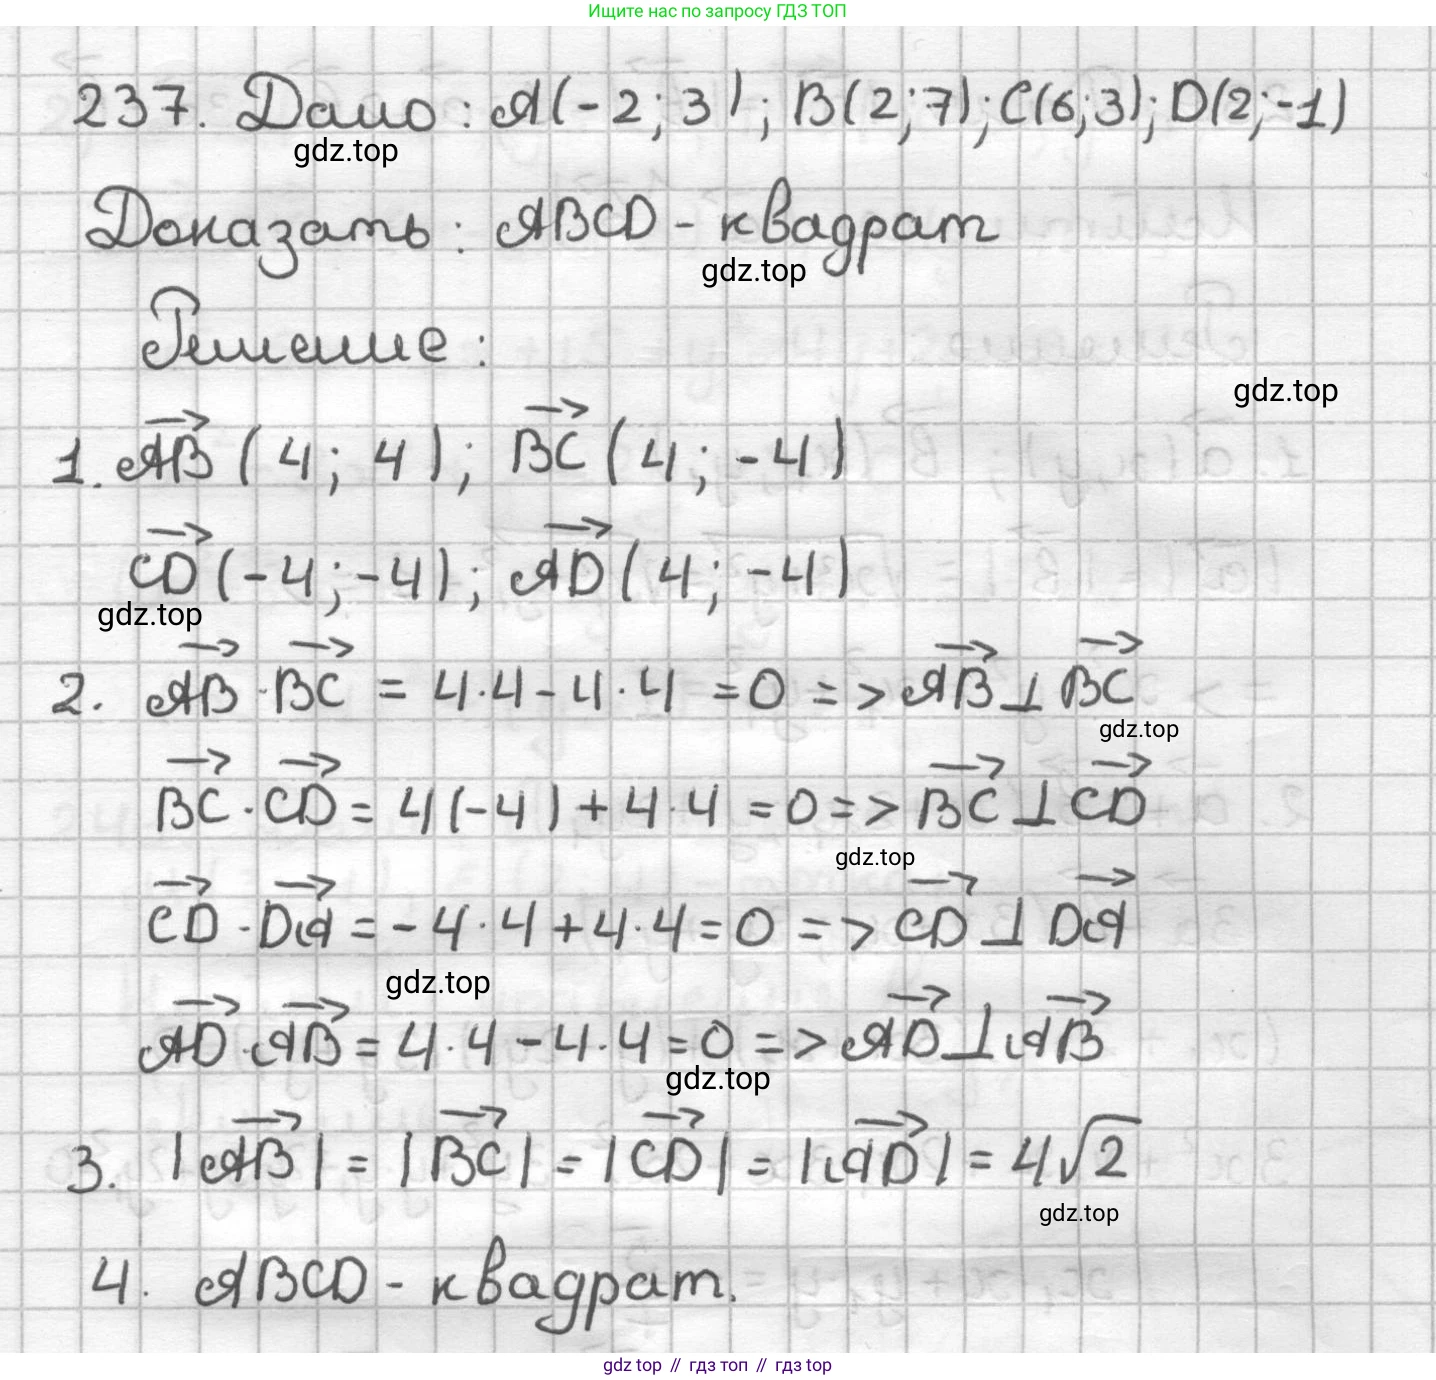 Ищите нас по запросу ГДЗ ТОП
237. Дано: A(-2; 3); B(2;7); C(6;3); D(2;-1)
gdz.top
Доказать: ABCD - квадрат
gdz.top
Решение:
gdz.top
1. AB→ (4; 4); BC→ (4; -4)
CD→ (-4; -4); AD→ (4; -4)
gdz.top
2. AB→ · BC→ = 4·4 - 4·4 = 0 => AB→ ⊥ BC→
gdz.top
BC→ · CD→ = 4(-4) + 4·4 = 0 => BC→ ⊥ CD→
gdz.top
CD→ · DA→ = -4·4 + 4·4 = 0 => CD→ ⊥ DA→
gdz.top
AD→ · AB→ = 4·4 - 4·4 = 0 => AD→ ⊥ AB→
gdz.top
3. |AB→| = |BC→| = |CD→| = |AD→| = 4√2
gdz.top
4. ABCD - квадрат.
gdz top // гдз топ // gdz.top